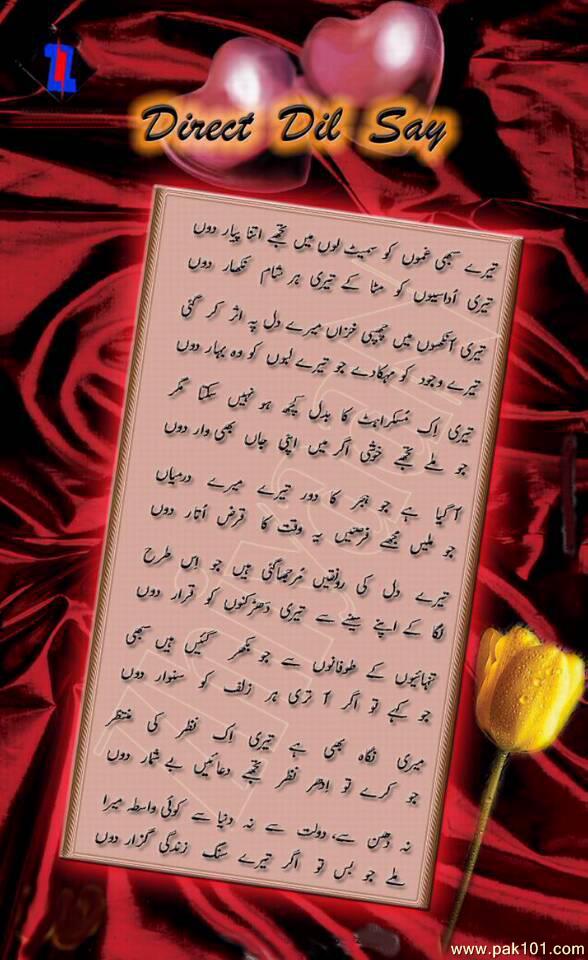 Direct Dil Say
تیرے سبھی غموں کو سمیٹ لوں میں تجھے اتنا پیار دوں
تیری اُداسیوں کو مٹا کے تیری ہر شام نکھار دوں
تیری آنکھوں میں چھپی خزاں میرے دل پہ اثر کر گئی
تیرے وجود کو مہکادے جو تیرے لبوں کو وہ بہار دوں
تیری اِک مُسکراہٹ کا بدل کچھ ہو نہیں سکتا مگر
جو ملے تجھے خوشی اگر میں اپنی جاں بھی وار دوں
آگیا ہے جو ہجر کا دور تیرے میرے درمیاں
جو ملیں مجھے فرصتیں یہ وقت کا قرض اُتار دوں
تیرے دل کی رونقیں مُرجھاگئی ہیں جو اِس طرح
لگا کے اپنے سینے سے تیری دھڑکنوں کو قرار دوں
تنہائیوں کے طوفانوں سے جو بکھر گئیں ہیں سبھی
جو کہے تو اگر آ تری ہر زلف کو سنوار دوں
میری نگاہ بھی ہے تیری اِک نظر کی منتظر
جو کرے تو اِدھر نظر تجھے دعائیں بے شمار دوں
نہ دھن سے، دولت سے نہ دنیا سے کوئی واسطہ میرا
ملے جو بس تو اگر تیرے سنگ زندگی گزار دوں
www.pak101.com